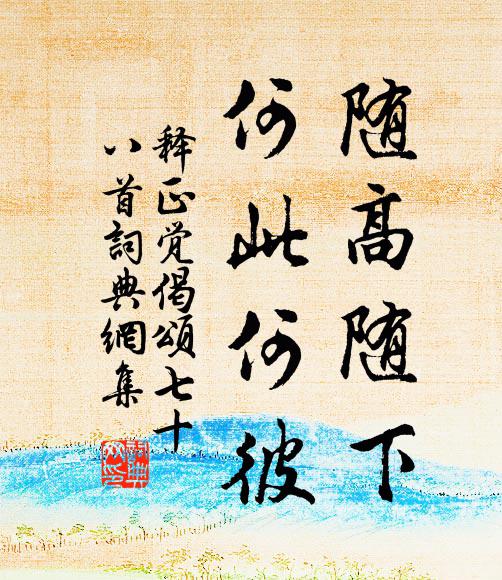 随高随下
何此何彼
释正觉偈颂七十
八首詞典網集